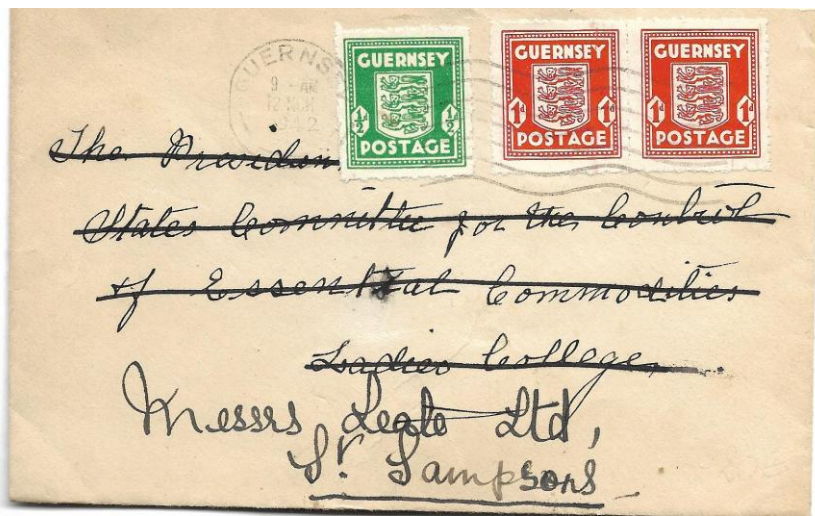 GUERNSEY
½ ½
POSTAGE
GUERNSEY
1ᵈ 1ᵈ
POSTAGE
GUERNSEY
1ᵈ 1ᵈ
POSTAGE
GUERNS
9 - AM
12 MCH
The Presiden
States Committee for the Control
of Essential Commodities
Ladies College,
Messrs Leale Ltd,
St. Sampsons